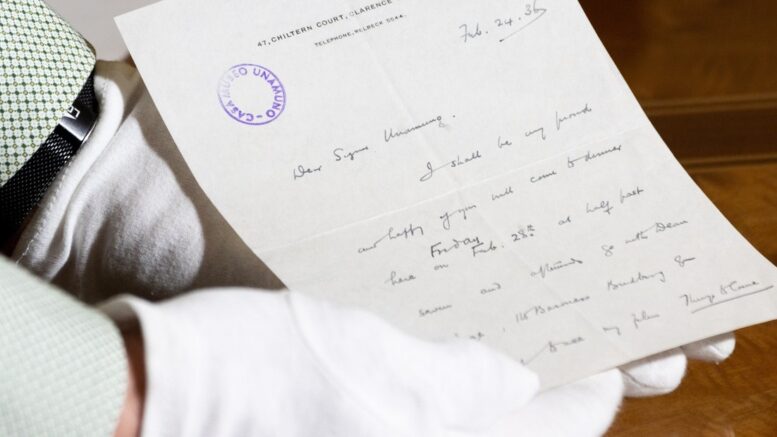 47, CHILTERN COURT, CLARENCE
TELEPHONE, WELBECK 5544.
Feb. 24. 36
CASA MUSEO UNAMUNO -
Dear Signor Unamuno.
I shall be very proud
and happy if you will come to dinner
here on Friday Feb. 28th at half past
seven and afterwards go with Dean
Baroness Budberg &
to see my film Things to Come